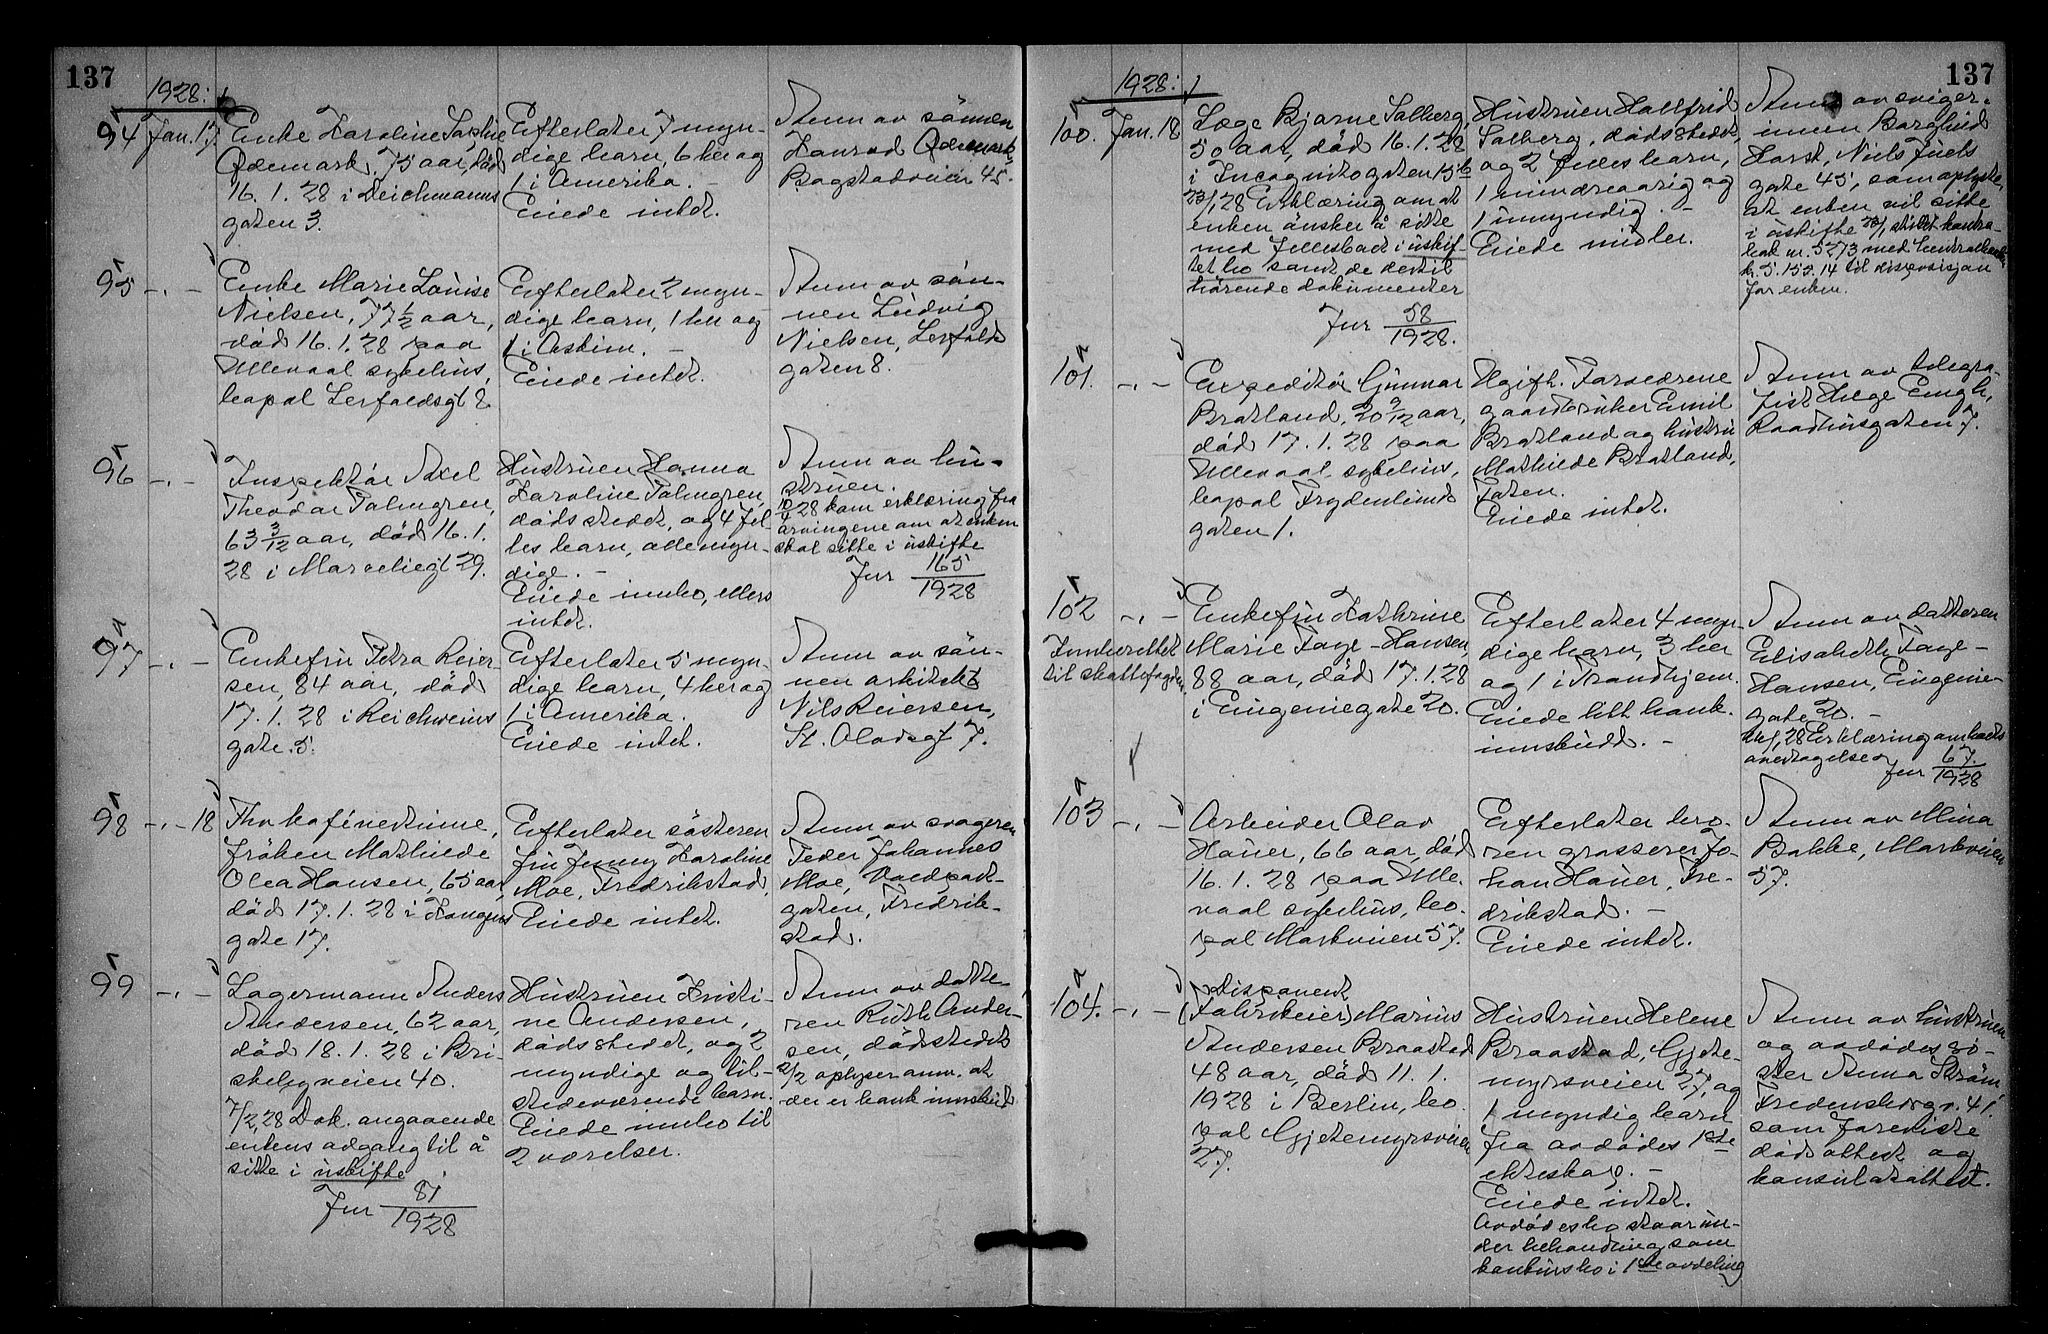 137
1928:
94 Jan. 17.
Enke Karoline Sophie
Ødemark, 75 aar, død
16. 1. 28 i Deichmanns
gaten 3.
Efterlater 7 myn-
dige barn, 6 her og
1 i Amerika. -
Eiede intet.
Anm av sønnen
Konrad Ødemark,
Bogstadveien 45.
95 -"-
Enke Marie Louise
Nielsen, 77 1/2 aar,
død 16. 1. 28 paa
Ullevaal sykehus,
bopæl Lerfaldsgt 8.
Efterlater 2 myn-
dige barn, 1 her og
1 i Askim. -
Eiede intet.
Anm av søn-
nen Ludvig
Nielsen, Lerfalds
gaten 8.
96 -"-
Inspektør Axel
Theodor Palmgren,
63 3/12 aar, død 16. 1.
28 i Marseliegt 29.
Hustruen Hanna
Karoline Palmgren,
dødsstedet, og 4 fel
les barn, alle myn-
dige. -
Eiede innbo, ellers
intet.
Anm av hu-
struen.
28 kom erklæring fra
arvingene om at enken
skal sitte i uskifte
Jnr 165/1928
97 -"-
Enkefru Petra Reier-
sen, 84 aar, død
17. 1. 28 i Reichweins
gate 5.
Efterlater 5 myn-
dige barn, 4 her og
1 i Amerika.
Eiede intet.
Anm av søn-
nen arkitekt
Nils Reiersen,
St. Olavsgt 7.
98 -"- 18
Fhv kafévertinne,
frøken Mathilde
Olea Hansen, 65 aar,
død 17. 1. 28 i Kongens
gate 17.
Efterlater søsteren
fru Jenny Karoline
Moe, Fredrikstad.
Eiede intet.
Anm av svogeren
Peder Johannes
Moe,
gaten, Fredrik-
stad.
99 -"-
Lagermann Anders
Andersen, 62 aar,
død 18. 1. 28 i Bri-
skebyveien 40.
7/2 28 Dok. angaaende
enkens adgang til å
sitte i uskifte
Jnr 81/1928
Hustruen Kristi-
ne Andersen,
dødsstedet, og 2
myndige og til-
stedeværende barn.
Eiede innbo til
2 værelser.
Anm av datte-
ren Ruth Ander-
sen, dødsstedet
2/2 oplyser anm. at
der er bank innskud
137
1928:
100. Jan. 18
Læge Bjarne Salberg,
50 aar, død 16. 1. 28
i Incognitogaten 15 b
23/1 28 Erklæring om at
enken ønsker å sitte
med fellesboet i uskif-
tet bo samt de dertil
hørende dokumenter
Jnr 58/1928.
Hustruen Hallfrid
Salberg, dødsstedet,
og 2 felles barn,
1 mindreaarig og
1 umyndig. -
Eiede midler.
Anm av sviger-
innen Borghild
Horst, Niels Juels
gate 45, som oplyste,
at enken vil sitte
i uskifte
nr. 5273 med
kr. 5.153.14 til disposisjon
for enken.
101. -"-
Expeditør Gunnar
Bratland, 20 9/12 aar,
død 17. 1. 28 paa
Ullevaal sykehus,
bopæl Frydenlunds
gaten 1.
Ugift. Forældrene
gaardbruker Emil
Bratland og hustru
Mathilde Bratland,
Toten.
Eiede intet.
Anm av telegra-
fist Helge Engh,
Raadhusgaten 7.
102 -"-
Innberettet
til skattefogden.
Enkefru Kathrine
Marie Faye-Hansen,
88 aar, død 17. 1. 28
i Eugeniegate 20.
Efterlater 4 myn-
dige barn, 3 her
og 1 i Trondhjem.
Eiede litt bank.
innskudd. -
Anm av datteren
Elisabeth Faye-
Hansen, Eugenie-
gate 20. -
28 Erklæring om boets
overtagelse
Jnr 67/1928
103 -"-
Arbeider Olav
Hauer, 66 aar, død
16. 1. 28 paa Ulle-
vaal sykehus, bo-
pæl Markveien 57.
Efterlater bro-
ren grosserer Jo-
han Hauer, Fre-
drikstad. -
Eiede intet.
Anm av Mina
Bakke, Markveien
57.
104. -"-
Disponent
(Fabrikeier) Marius
Andersen Braastad
48 aar, død 11. 1.
1928 i Berlin, bo-
pæl Gjetemyrsveien
27.
Hustruen Helene
Braastad, Gjete-
myrsveien 27, og
1 myndig barn
fra avdødes 1ste
ekteskap. -
Eiede intet.
Avdødes bo staar un-
der behandling som
konkursbo i 1ste avdeling
Anm av hustruen
og avdødes sø-
ster Anna Strøm
Fredensborgv. 41,
som foreviste
dødsattest og
konsulatattest.